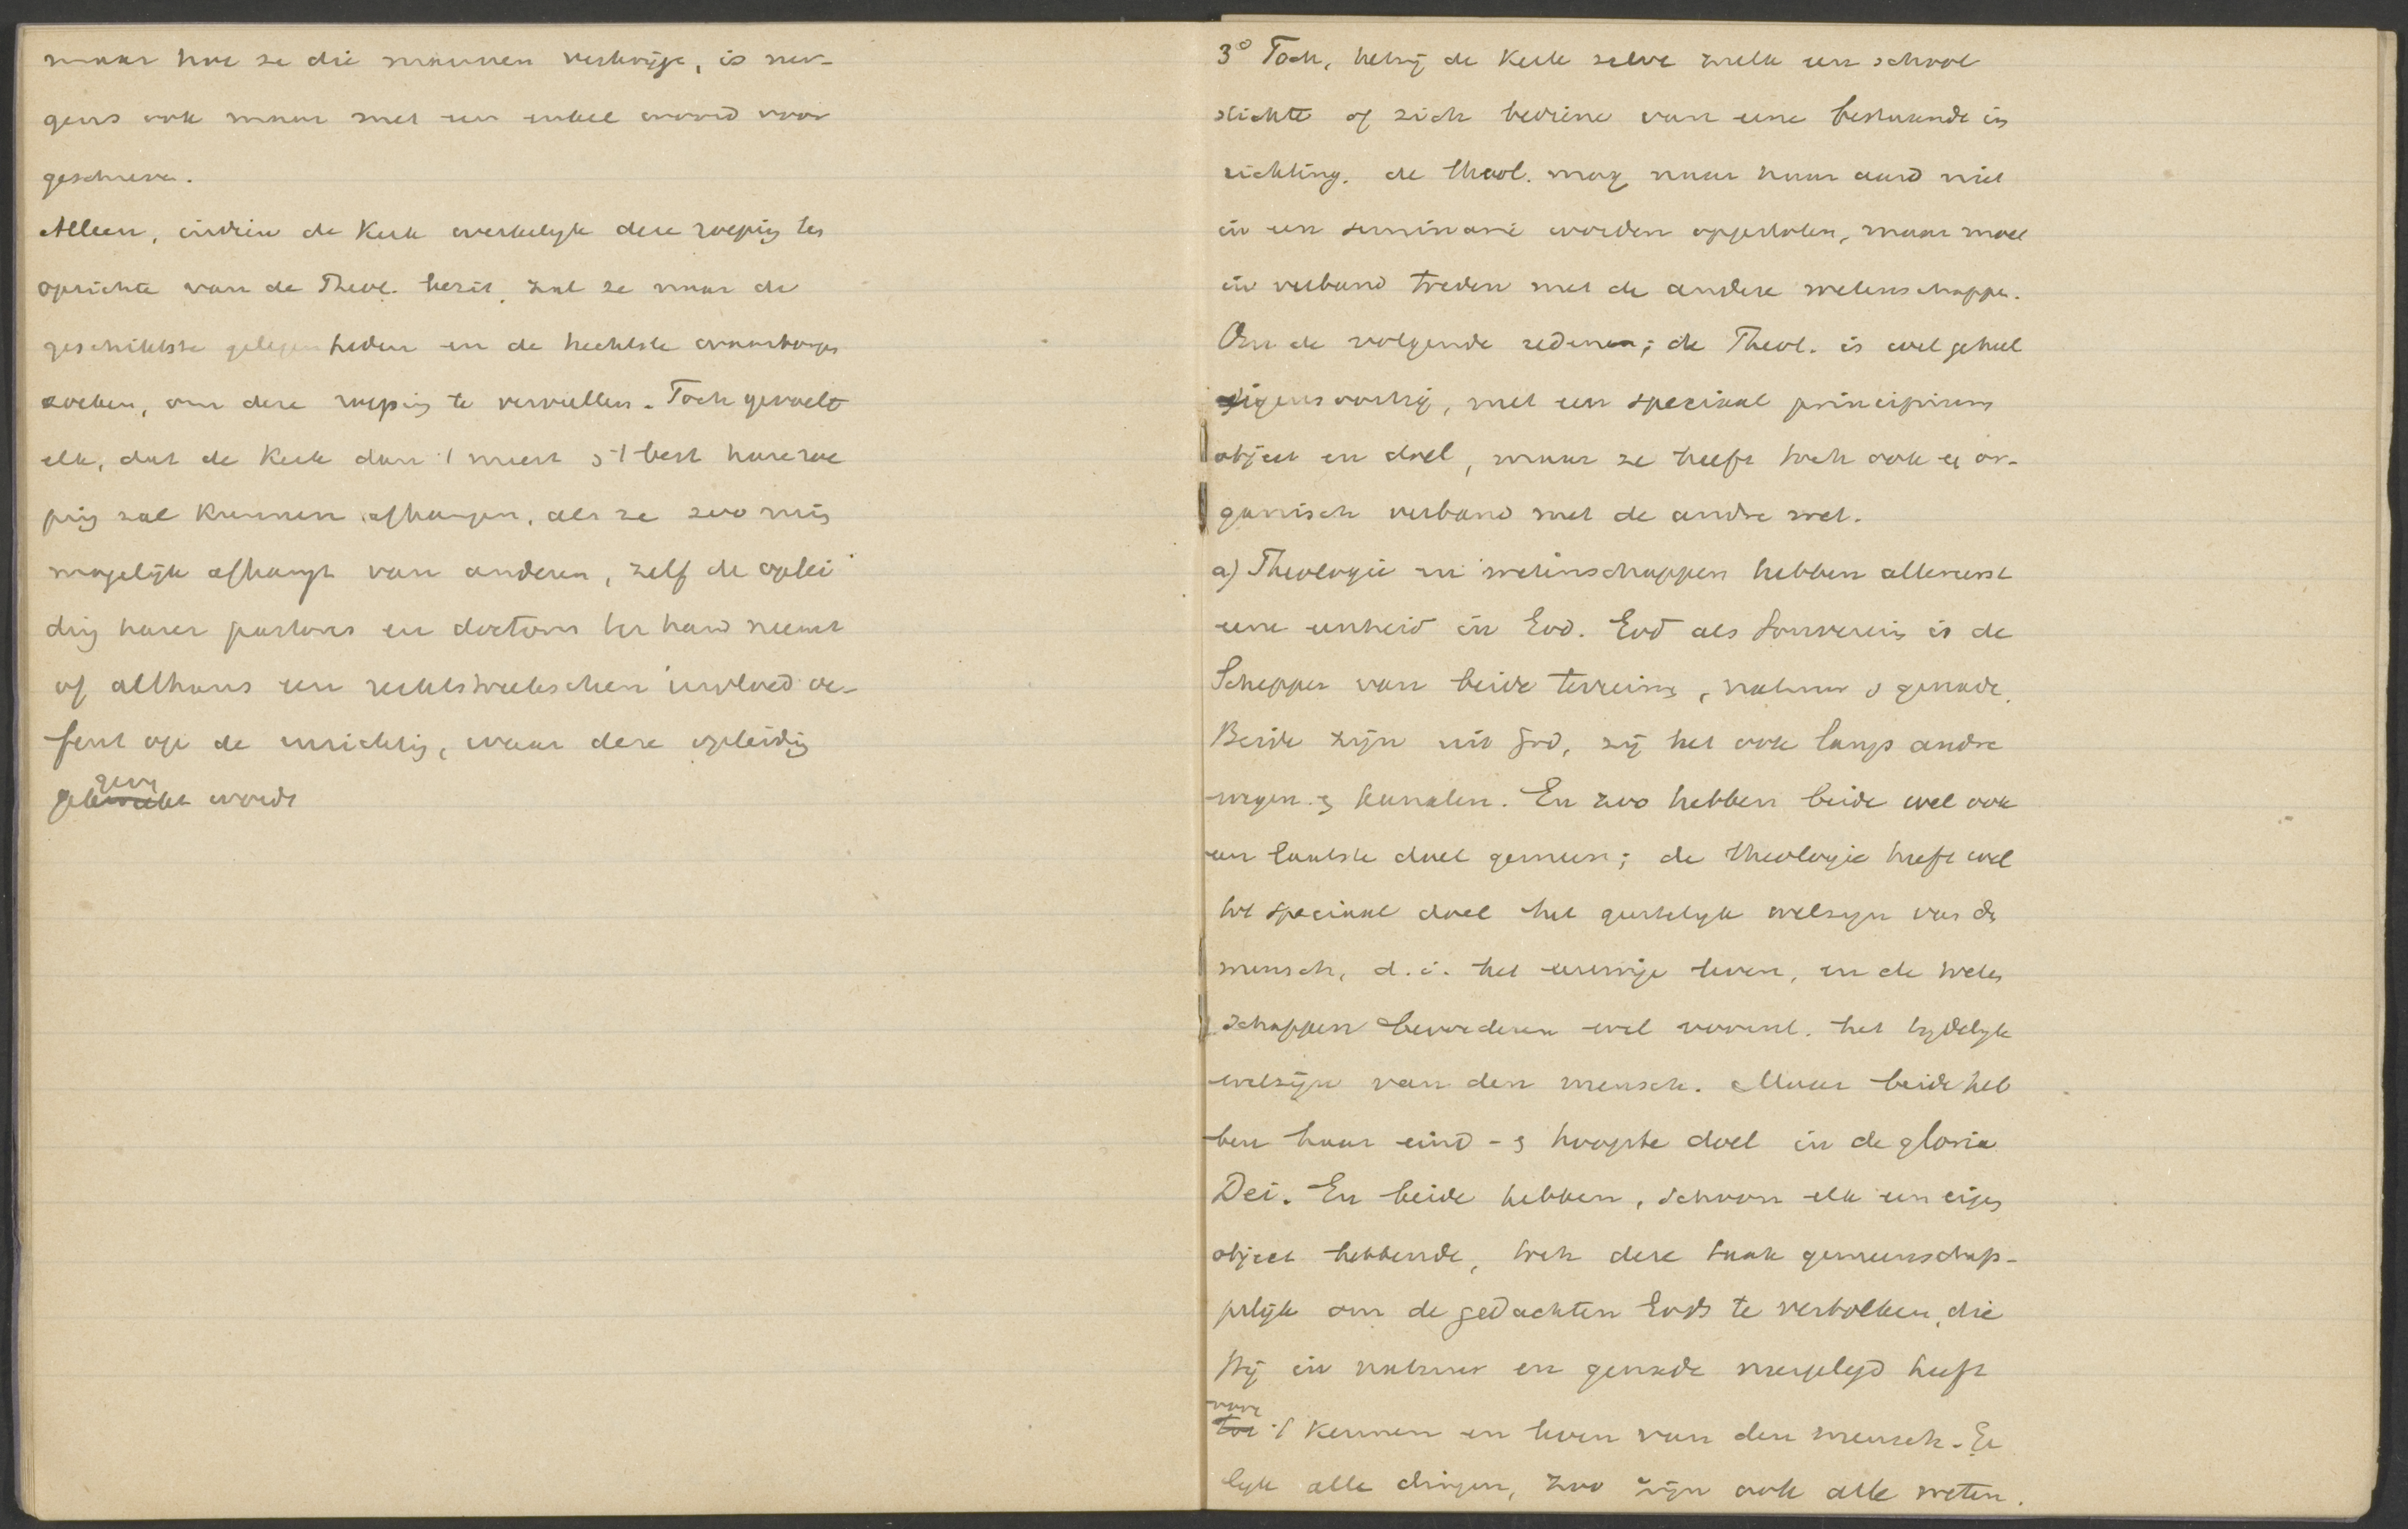 maar hoe ze die mannen verkrijge, is ner-
gens ook maar met een enkel woord voor
geschreven.
Alleen, indien de Kerk werkelyk deze roeping tot
oprichte van de Theol. bezit, zal ze naar de
geschiktste gelegenheden en de hechtste waarborgen
zoeken, om deze roeping te vervullen. Toch gevoelt
elk, dat de Kerk dan 't meest & 't best hare roe
ping zal kunnen, als ze zoo min
mogelijk afhangt van anderen, zelf de oplei
ding harer pastores en doctores ter hand neemt
of althans een rechtstreekschen invloed oe-
fent op de inrichting, waar deze opleiding
gegeven wordt
3° Toch, hetzij de Kerk zelve zulk een school
stichte of zich bediene van eene bestaande in
richting. de theol. mag naar haar aard niet
in een seminarie worden opgesloten, maar moet
in verband treden met de andere wetenschappe.
Om de volgende redenen; de Theol. is wel geheel
eigensoortig, met een speciaal principium
object en doel, maar ze heeft toch ook een or-
ganisch verband met de andre wet.
a) Theologie en wetenschappen hebben allereerst
eene eenheid in God. God als Souverein is de
Schepper van beide terreins, natuur & genade.
Beide zijn uit God, zij het ook langs andre
wegen & kanalen. En zoo hebben beide wel ook
een laatste doel gemeen; de theologie heeft wel
tot speciaal doel het geestelyk welzyn van de
mensch, d.i. het eeuwige leven, en de weten
schappen bevorderen wel voornl. het tydelyk
welzijn van den mensch. Maar beide heb
ben haar eind- & hoogste doel in de gloria
Dei. En beide hebben, schoon elk een eigen
object hebbende, toch deze taak gemeenschap-
pelijk om de gedachten Gods te vertolken, die
Hij in natuur en genade neergelegd heeft
voor 't kennen en leven van den mensch. Ge
lyk alle dingen, zoo zijn ook alle weten.